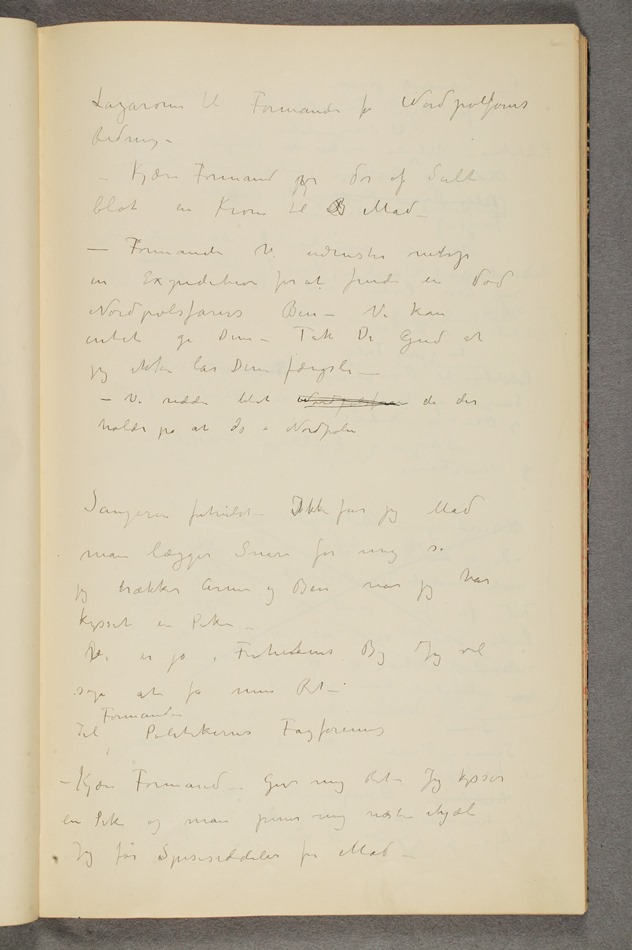 Lazarons til Formanden for Nordpolfarens
Redning –
– Kjære Formand jeg dør af Sult
blot en Krone til Mad –
– Formanden Vi udruster netop
en Expedition for at finde en død
Nordpolsfarers Ben – Vi kan
intet gi Dem – Tak De Gud at
jeg ikke lar Dem fængsle –
– Vi redder blot de der
holder på at dø i Nordpolen
Sangeren fortvilet – Ikke får jeg Mad
man lægger Snarer for mig så
jeg brækker Arme og Ben når jeg har
kysset en Pike –
Vi er jo i Frihedens By Jeg vil
søge at få min Ret –
Formanden
Til Politikernes Fagforening
– Kjære Formand – Giv mig Ret – Jeg kysser
en Pike og man piner mig næsten ihjæl
Jeg får Spisesedeler for Mad –